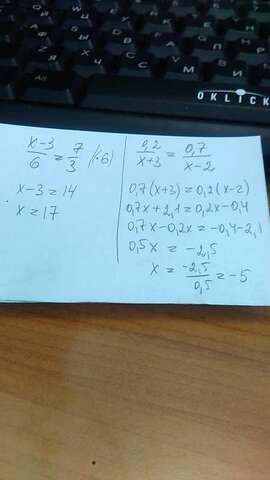 OKLICK
x-3/6 = 7/3 |(·6)
x-3=14
x=17
0,2/x+3 = 0,7/x-2
0,7(x+3)=0,2(x-2)
0,7x+2,1=0,2x-0,4
0,7x-0,2x=-0,4-2,1
0,5x = -2,5
x = -2,5/0,5 = -5